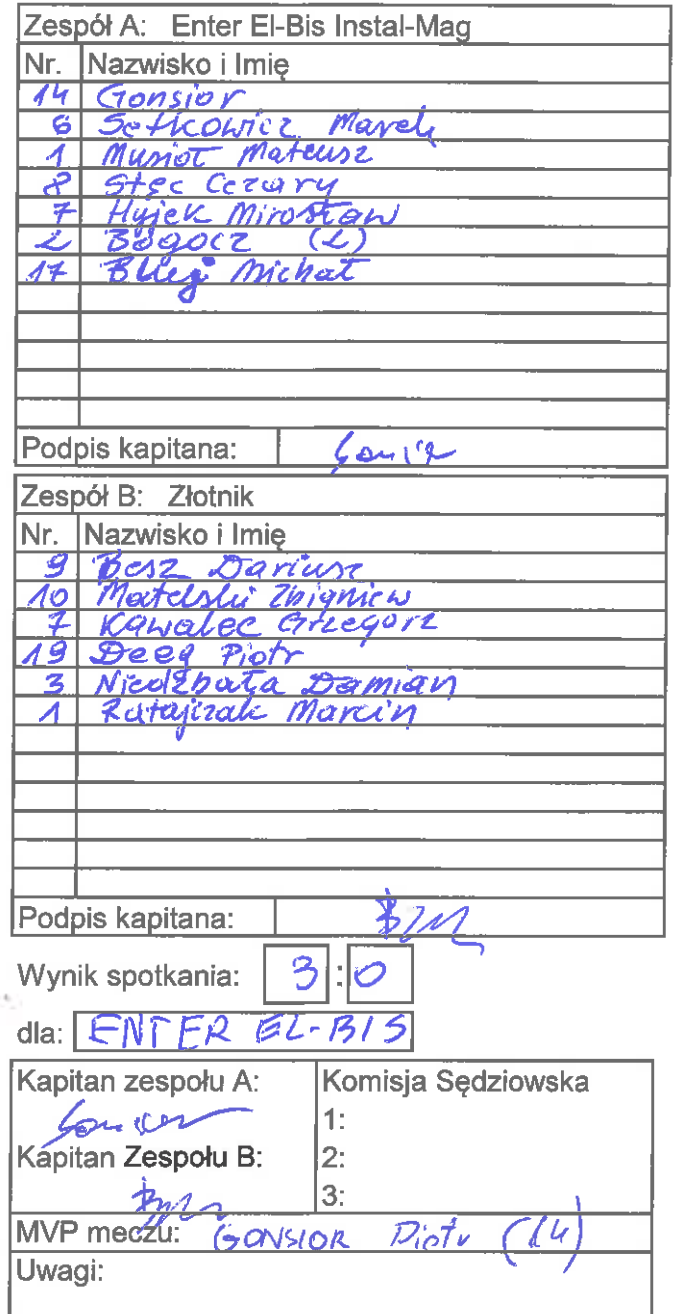 Zespół A: Enter El-Bis Instal-Mag
Nr. Nazwisko i Imię
14 Gonsior
6 Setkowicz Marek
1 Musioł Mateusz
8 Stęc Cezary
7 Hyjek Mirosław
2 Bogocz (L)
17 Michał
Podpis kapitana:
Zespół B: Złotnik
Nr. Nazwisko i Imię
9 Besz Dariusz
10 Matelski Zbigniew
7 Kawalec Grzegorz
19 Deeg Piotr
3 Niedźbała Damian
1 Ratajczak Marcin
Podpis kapitana:
Wynik spotkania: 3 : 0
dla: ENTER EL-BIS
Kapitan zespołu A: Komisja Sędziowska
1:
Kapitan Zespołu B: 2:
3:
MVP meczu: GONSIOR Piotr (14)
Uwagi: